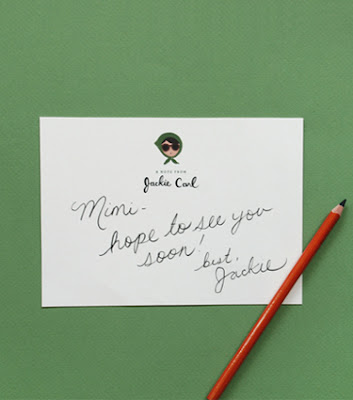 A NOTE FROM
Jackie Carl
Mimi-
hope to see you
soon!
best,
Jackie